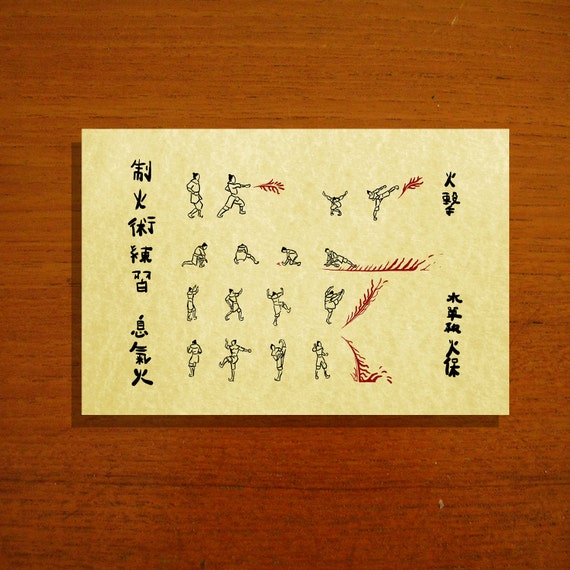 制火術練習 息氣火
火擊
水 火保